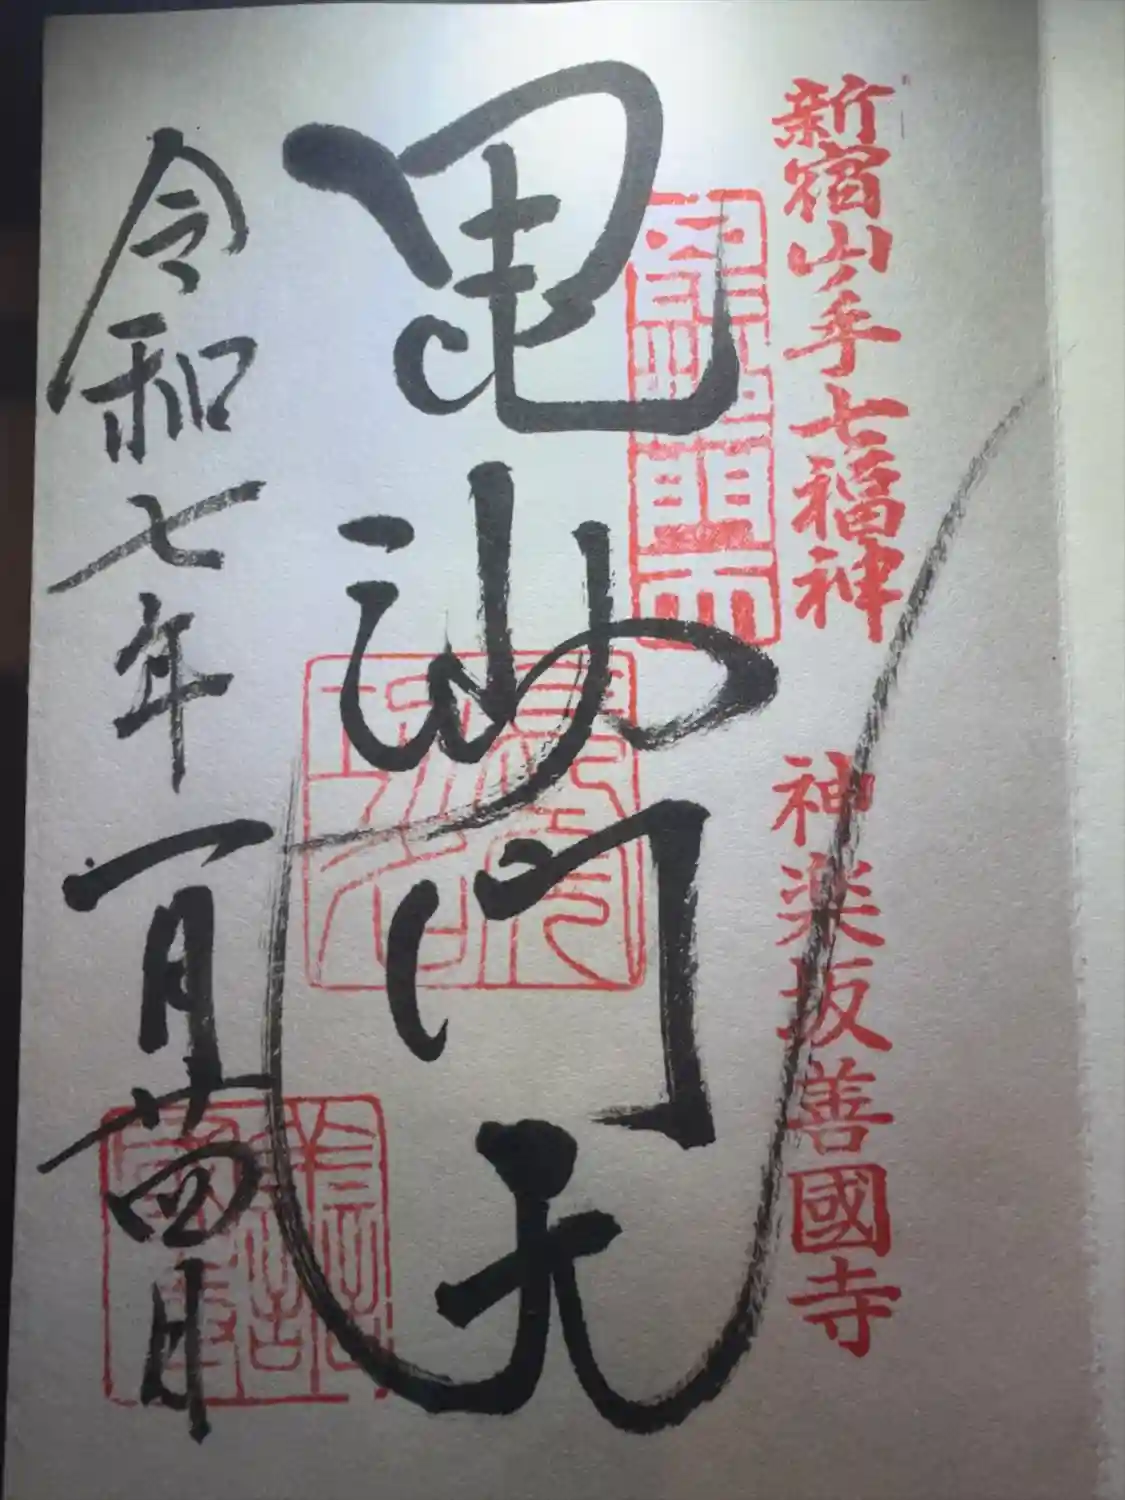 新宿山手七福神
神楽坂善國寺
毘沙門天
令和七年一月廿四日